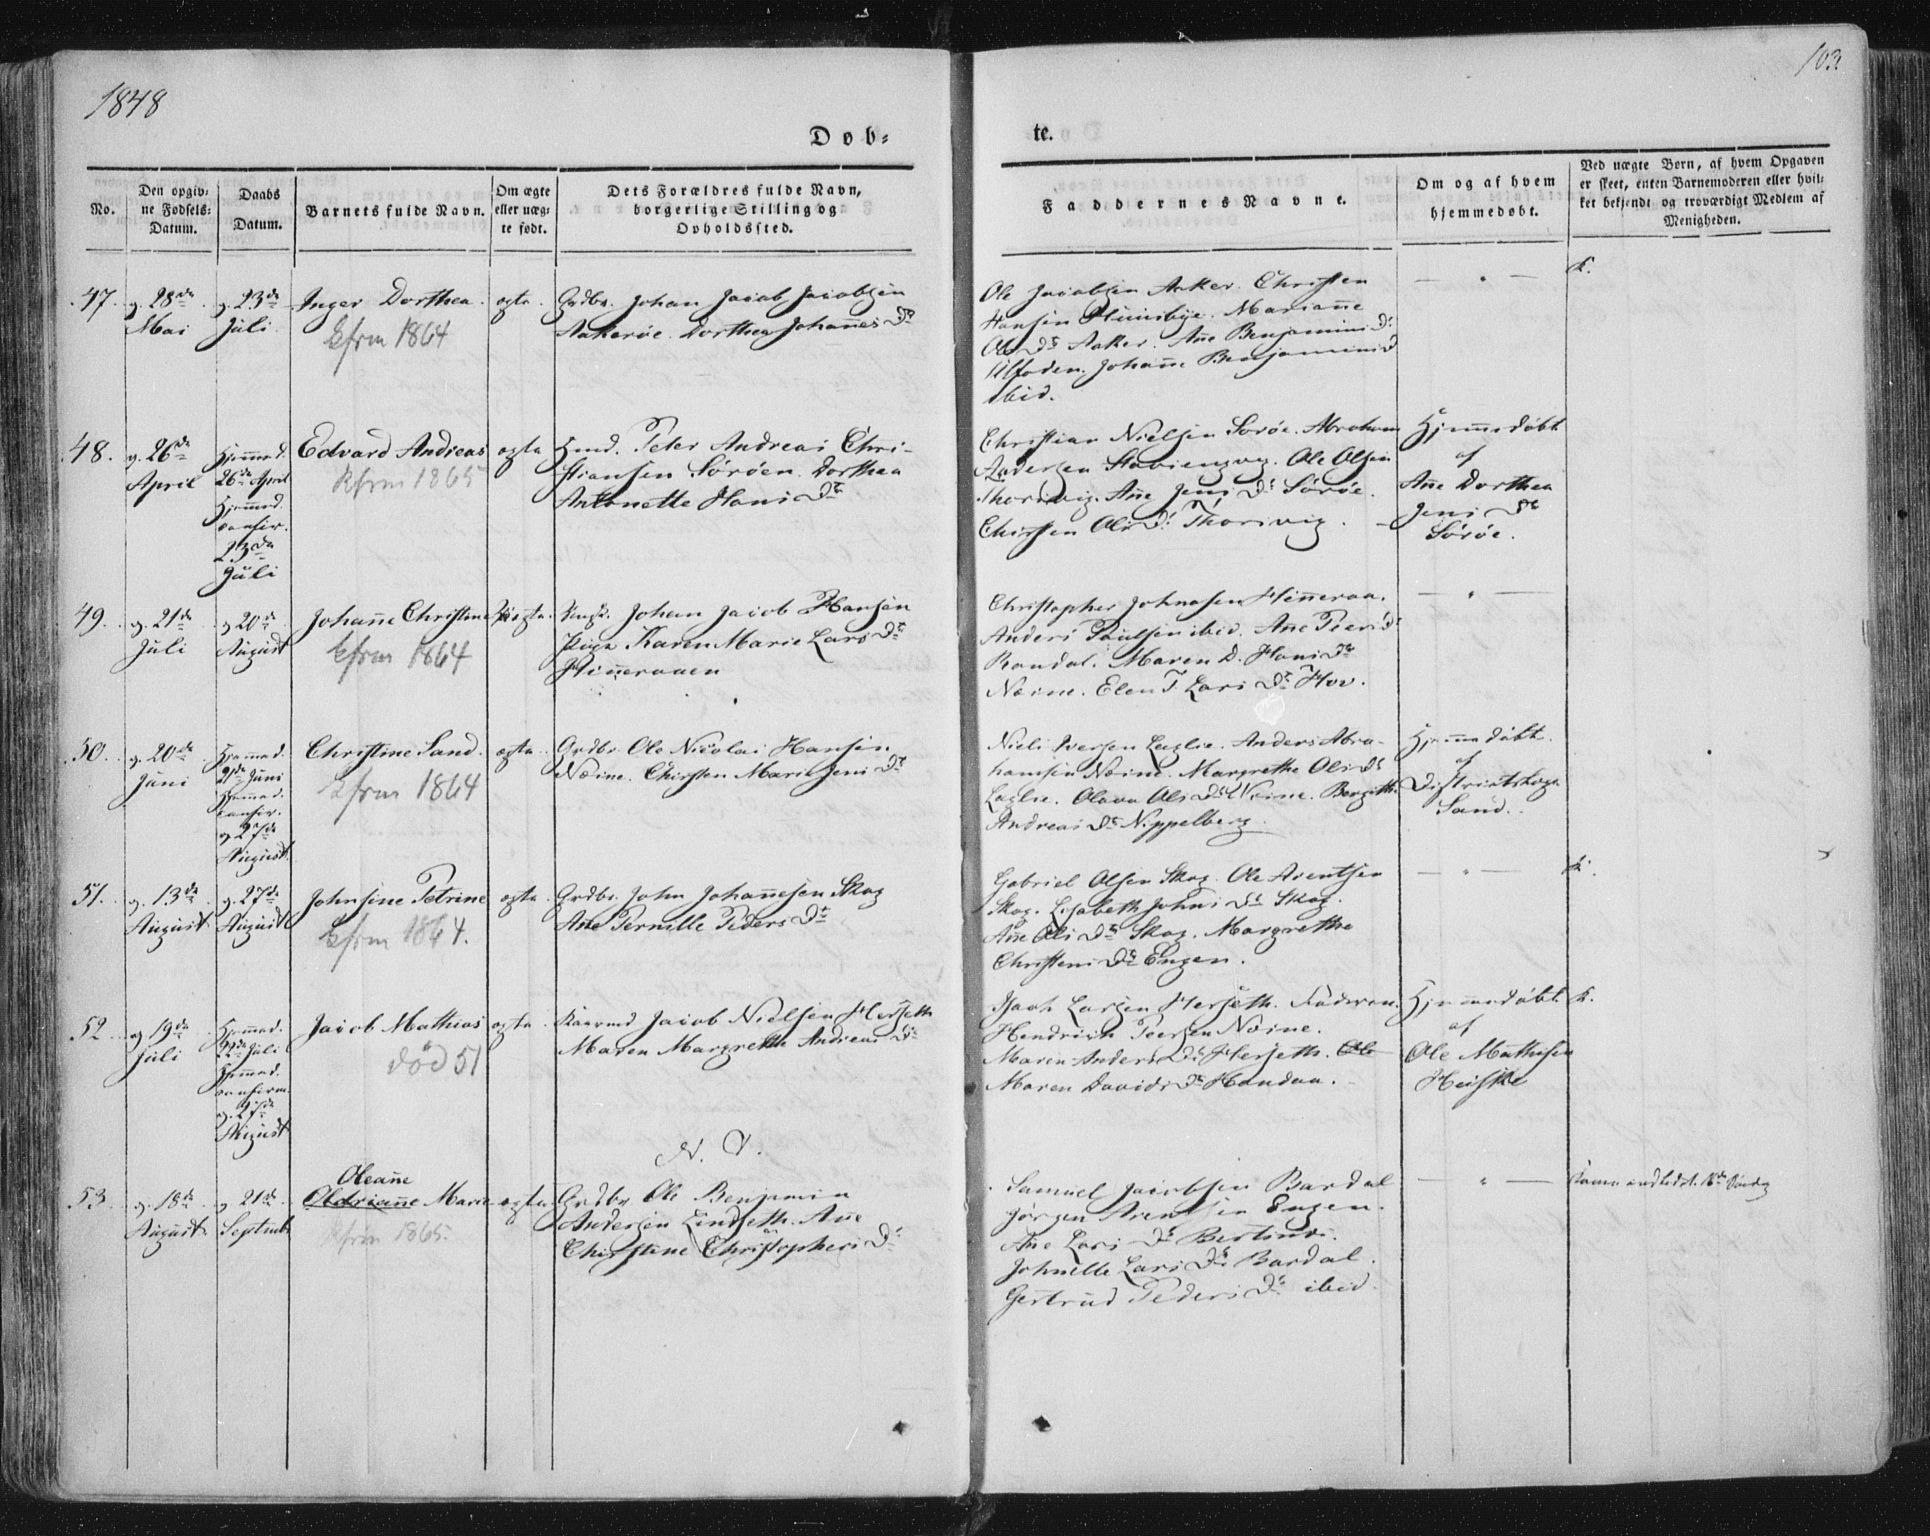 1848
103.
Døb-
te.
No.
Den opgiv-
ne Fødsels-
Datum.
Daabs
Datum.
Barnets fulde Navn.
Om ægte
eller uæg-
te født.
Dets Forældres fulde Navn,
borgerlige Stilling og
Opholdssted.
Faddernes Navne.
Om og af hvem
hjemmedøbt.
Ved uægte Børn, af hvem Opgaven
er skeet, enten Barnemoderen eller hvil-
ket bekjendt og troværdigt Medlem af
Menigheden.
47.
g. 28de
Mai
g. 23de
Juli
Inger Dorthea.
Cfrm 1864
ægte.
Grdbr. Johan Jacob Jacobsen
Aakerøe. Dorthea Johannes Dr
Ole Jacobsen Aaker. Christen
Hansen. Marianne
Ols Dr Aaker. Ane Benjamins Dr
Johanne Benjamins D
ibid.
48.
g. 26de
April
Hjemmed.
26de April
Hjemmed.
confir.
23de
Juli
Edvard Andreas
Kfrm 1865
ægte
Hmd. Peter Andreas Chri-
stiansen Sørøen. Dorthea
Antonette Hans Dr
Christian Nielsen Sørøe. Abraham
Andersen. Ole Olsen
Thorsvig. Ane Jens Dr Sørøe.
Chirsten Ols Dr Thorsvig.
Hjemmedøbt
af
Ane Dorthea
Jens Dr
Sørøe.
49.
g. 21de
Juli
g 20de
August
Johanne Christine
Cfrm 1864
ægte.
Ungk. Johan Jacob Hansen
Pige Karen Marie Lars Dr
Hinneraaen
Christopher Johnasen Hinneraa.
Anders Poulsen ibid. Ane Peers Dr
Bardal. Maren D. Hans Dr
Nesne. Elen T. Lars Dr Hov.
50.
g. 20de
Juni
Hjemmed.
21de Juni
Hjemmed.
confir.
g 27de
August.
Christine Sand.
Cfrm 1864
ægte.
Grdbr. Ole Nicolai Hansen
Nesne. Chirsten Marie Jens Dr
Niels Iversen Laglie. Anders Abra-
hamsen Nesne. Margrethe Ols Dr
Laglie. Olava Ols Dr Nesne. Bergitte
Andreas Dr Nippelberg.
Hjemmedøbt.
af
Districtslæge
Sand.
51.
g. 13de
August
g. 27de
August
Johnsine Petrine
Cfrm 1864.
ægte.
Grdbr. John Johannesen Skog
Ane Pernille Peders Dr
Gabriel Olsen Skog. Ole Arentsen
Skog. Lisabeth Johns Dr Skog.
Ane Ols Dr Skog. Margrethe
Christens Dr Engen.
k.
52.
g 19de
Juli
Hjemmed.
22de Juli
Hjemmed.
confirm.
g. 27de
August
Jacob Mathias
død 51
ægte.
Jacob Nielsen Herseth
Maren Margrethe Andreas Dr
Isach Larsen Herseth.
Hendrich Peersen Nesne.
Maren Anders Dr Herseth. Ole
Maren Davids Dr Handaa.
Hjemmedøbt
af
Ole Mathisen
k.
N. V.
53.
g. 18de
August.
g 21de
Septembr
Oleane
Oldriane Marie
Kfrm 1865.
ægte
Grdbr Ole Benjamin
Andersen Lindseth. Ane
Chirstine Christophers Dr
Samuel Jacobsen Bardal
Jørgen Arentsen Engen.
Ane Lars Dr
Johnette Lars Dr Bardal.
Gertrud Peders Dr ibid.